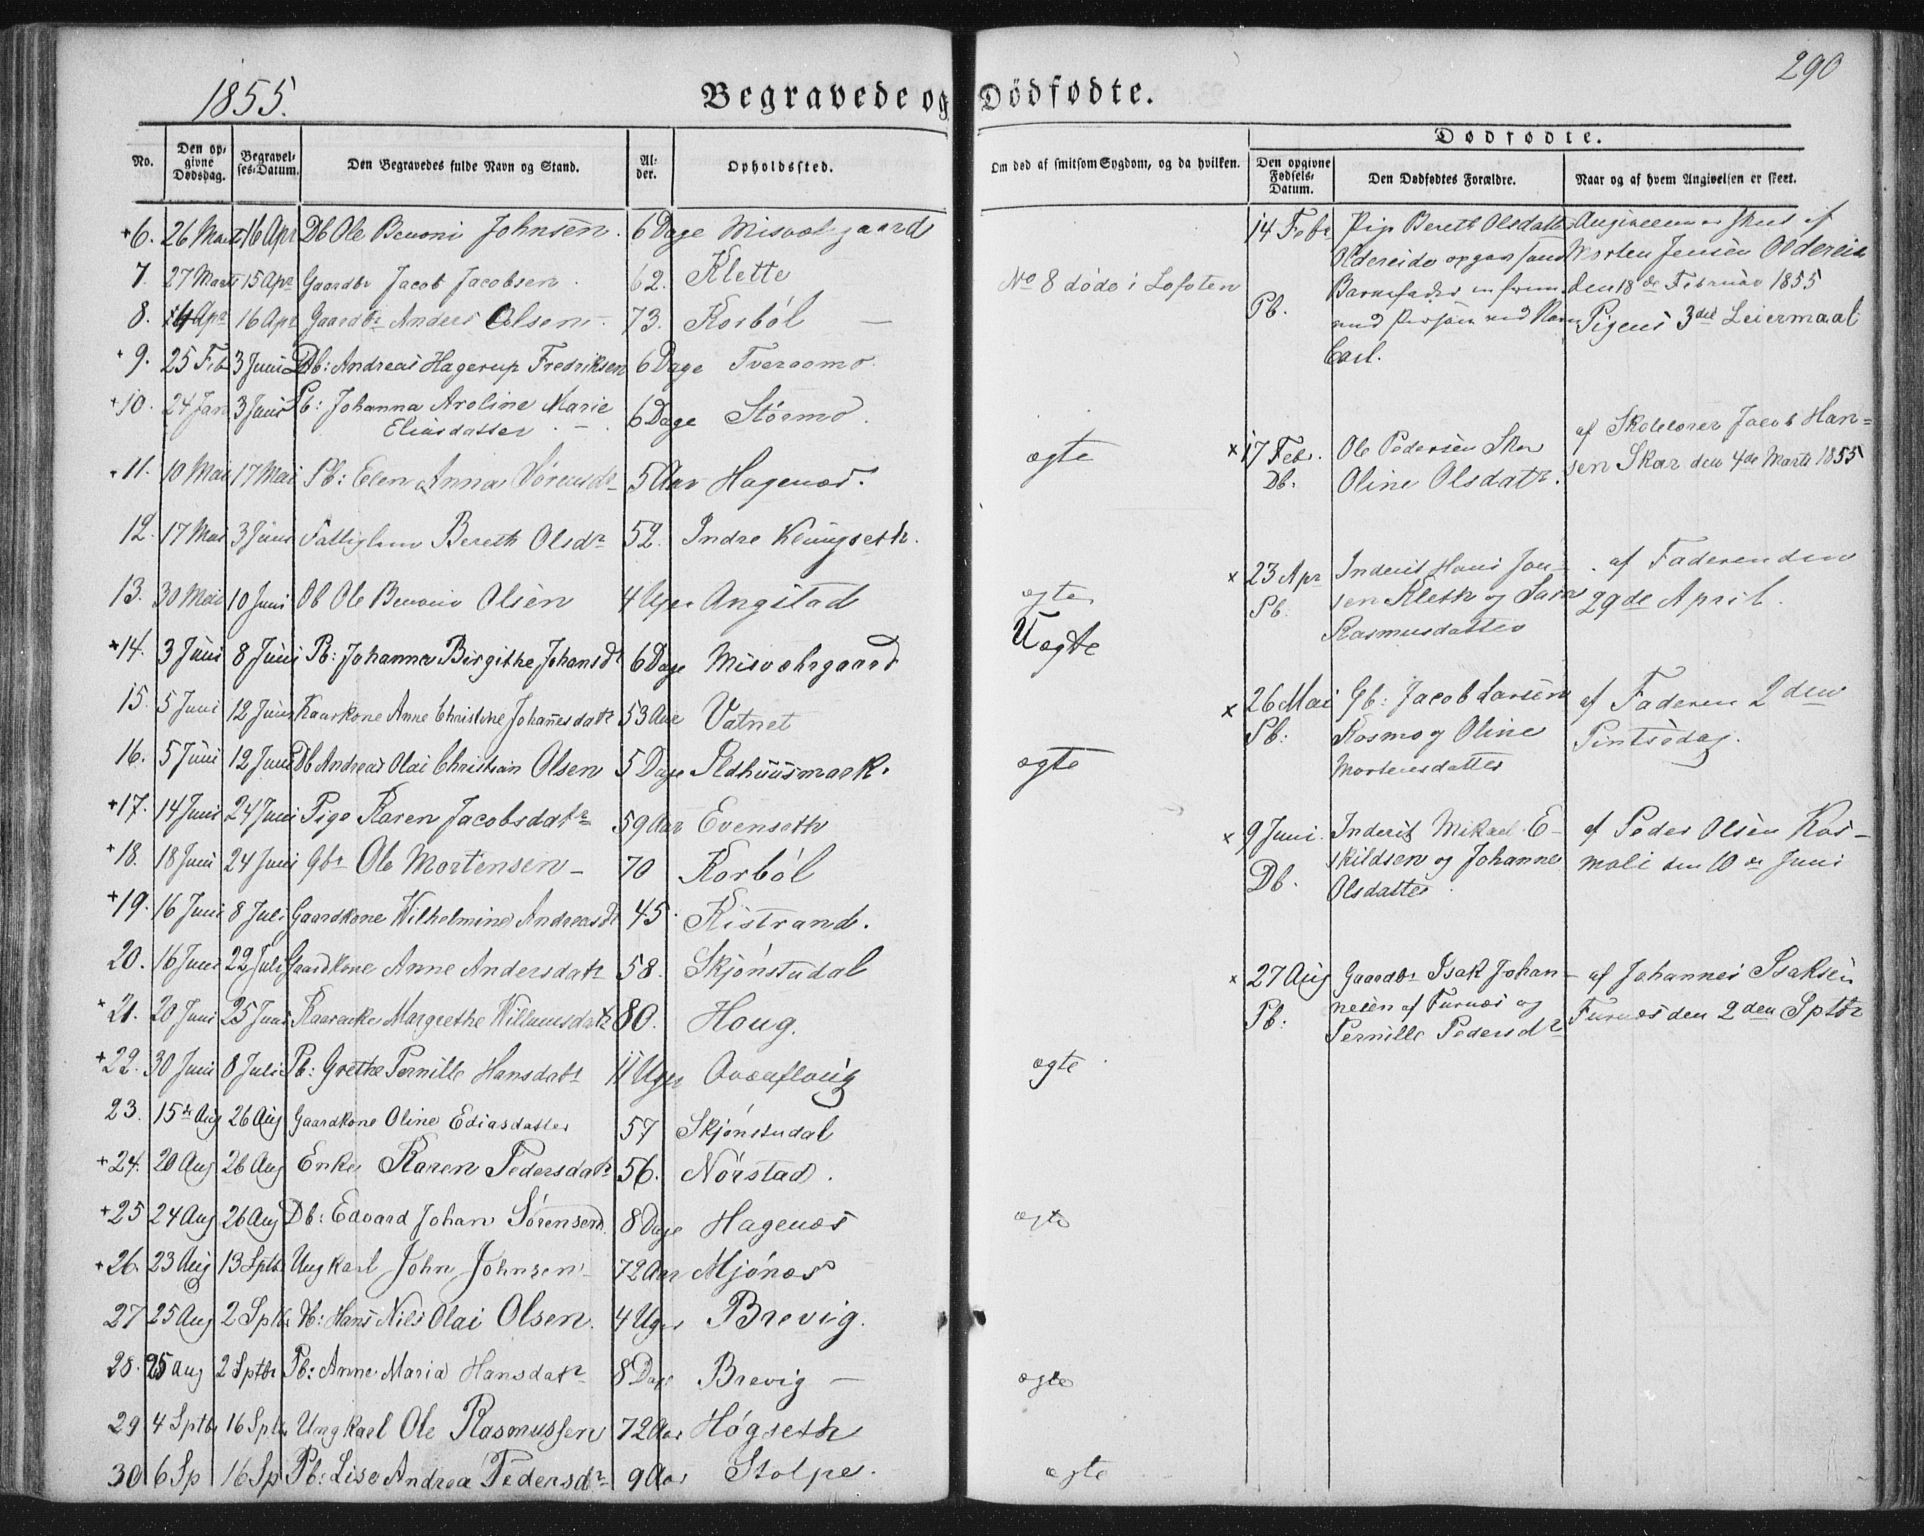 1855.
Begravede og Dödfödte.
290
Dödfödte.
No.
Den opgivne Dödsdag.
Begravelses-Datum.
Den Begravedes fulde Navn og Stand.
Alder.
Opholdssted.
Om död af smitsom Sygdom, og da hvilken.
Den opgivne Födsels-Datum.
Den Dödfödtes Forældre.
Naar og af hvem Angivelsen er skeet.
+6. 26 Marts 16 Apr Db Ole Benoni Johnsen. 6 Dage Misvæhrgaard
7. 27 Marts 15 Apr Gaardbr Jacob Jacobsen 62. Klette
8. 4 Apr 16 Apr Gaardbr Anders Olsen - 73. Kosböl - No 8 döde i Lofoten
+9. 25 Feb 3 Juni Db: Andreas Hagerup Fredriksen 6 Dage Tveraamo.
+10. 24 Jan 3 Juni Pb: Johanna Aroline Marie
Eliasdatter - 6 Dage Störmo.
+11. 10 Mai 17 Mai Pb: Elen Anna Sörensdr 5 Aar Hagenæs. ægte
12. 17 Mai 3 Juni Fattiglem Bereth Olsdr 52. Indre Klungseth.
13. 30 Mai 10 Juni Db Ole Benoni Olsen 4 Uger Angstad ægte
+14. 3 Juni 8 Juni Pb: Johanna Birgithe Johansdr 6 Dage Misvæhrgaard Uægte
15. 5 Juni 12 Juni Kaarkone Anne Christine Johannesdatr 53 Aar Vatnet
16. 5 Juni 12 Juni Db Andreas Olai Christian Olsen 5 Dage Ildhuusmark. ægte
+17. 14 Juni 24 Juni Pige Karen Jacobsdatr 59 Aar Evenseth
+18. 18 Juni 24 Juni Gbr Ole Mortensen - 70 Kosböl
+19. 16 Juni 8 Juli Gaardkone Wilhelmine Andreasdr 45. Kistrand.
20. 16 Juni 22 Juli Gaardkone Anne Andersdatr 58. Skjönstudal
+21. 20 Juni 25 Juni Kaarenke Margrethe Willumsdatr 80. Houg.
+22. 30 Juni 8 Juli Pb: Grethe Pernille Hansdatr 11 Uger ægte
23. 15de Aug 26 Aug Gaardkone Oline Ediasdatter 57 Skjönstudal
+24. 20 Aug 26 Aug Enke Karen Pedersdatr 56. Nörstad.
+25 24 Aug 26 Aug Db: Edvard Johan Sörensen 8 Dage Hagenæs ægte
+26. 23 Aug 13 Sptbr Ungkarl John Johnsen - 72 Aar Mjönæs
27 25 Aug 2 Sptbr Db: Hans Nils Olai Olsen. 4 Uger Brevig.
28. 25 Aug 2 Sptbr Pb: Anne Maria Hansdatr 8 Dage Brevig - ægte
29 4 Sptbr 16 Sptbr Ungkarl Ole Rasmussen 72 Aar Högseth
30 6 Sp 16 Sp Pb: Lise Andrea Pedersdr 9 Aar Stolpe. ægte
14 Febr Pige Bereth Olsdatter Angivelsen er skeet af
Oldereide opgav som Morten Jensen Oldereide
Barnefader en frem- den 18de Februar 1855
Pb. med Person ved Navn Pigens 3die Leiermaal
Carl.
x 17 Feb. Ole Pedersen Skar af Skolelærer Jacob Han-
Db. Oline Olsdatr. sen Skar den 4de Marts 1855
x 23 Apr Inderst Hans Jon- af Faderen den
Pb. sen Kleth og Sara 29de April.
Rasmusdatter
x 26 Mai Gb: Jacob Larsen af Faderen 2den
Pb: Kosmo og Oline Pintsedag.
Mortensdatter
x 9 Juni. Inderst Mikael E- af Peder Olsen Kos-
Db. skildsen og Johanne moli den 10de Juni
Olsdatter
x 27 Aug Gaardbr Isak Johan- af Johannes Isaksen
Pb: nesen af Furnæs og Furnæs den 2den Sptbr
Pernille Pedersdr